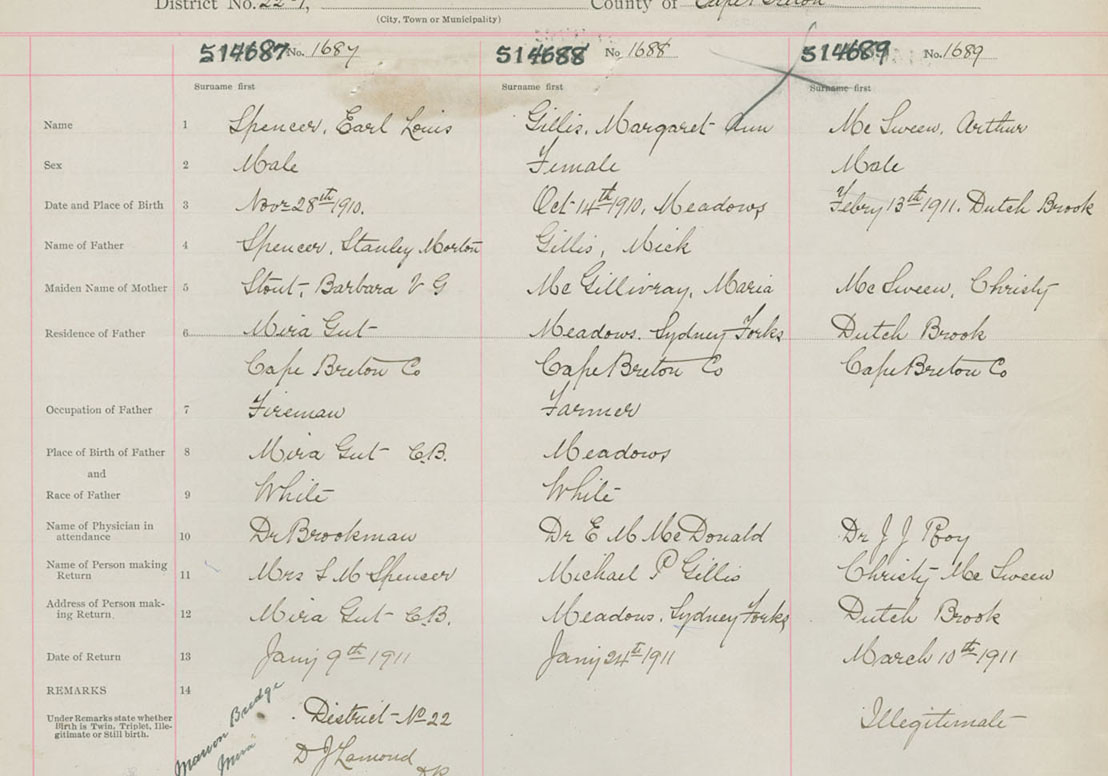 District No. 22 County of Cape Breton
(City, Town or Municipality)
514687 No. 1687 514688 No 1688 514689 No. 1689
Surname first Surname first Surname first
Name 1 Spencer, Earl Louis Gillis, Margaret Ann Mc Sween, Arthur
Sex 2 Male Female Male
Date and Place of Birth 3 Novr 28th 1910. Oct 14th 1910, Meadows Febry 13th 1911. Dutch Brook
Name of Father 4 Spencer, Stanley Morton Gillis, Mick
Maiden Name of Mother 5 Stout, Barbara V G Mc Gillivray, Maria Mc Sween, Christy
Residence of Father 6 Mira Gut Meadows. Sydney Forks Dutch Brook
Cape Breton Co Cape Breton Co Cape Breton Co
Occupation of Father 7 Fireman Farmer
Place of Birth of Father 8 Mira Gut C.B. Meadows
and
Race of Father 9 White White
Name of Physician in
attendance 10 Dr Brookman Dr E M McDonald Dr J J Roy
Name of Person making
Return 11 Mrs S M Spencer Michael P Gillis Christy Mc Sween
Address of Person mak-
ing Return. 12 Mira Gut C.B. Meadows. Sydney Forks Dutch Brook
Date of Return 13 Jany 9th 1911 Jany 24th 1911 March 10th 1911
REMARKS 14
Under Remarks state whether
Birth is Twin, Triplet, Ille-
gitimate or Still birth.
Marion Bridge
Mira
District No 22
D J Lamond
Illegitimate